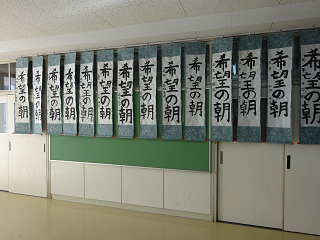 希望の朝
希望の朝
希望の朝
希望の朝
希望の朝
希望の朝
希望の朝
希望の朝
希望の朝
希望の朝
希望の朝
希望の朝
希望の朝
希望の朝